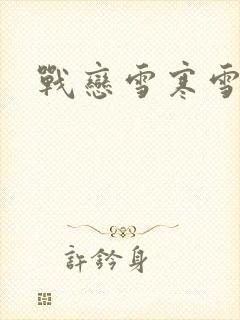 戰戀雪寒雪
許鈐身